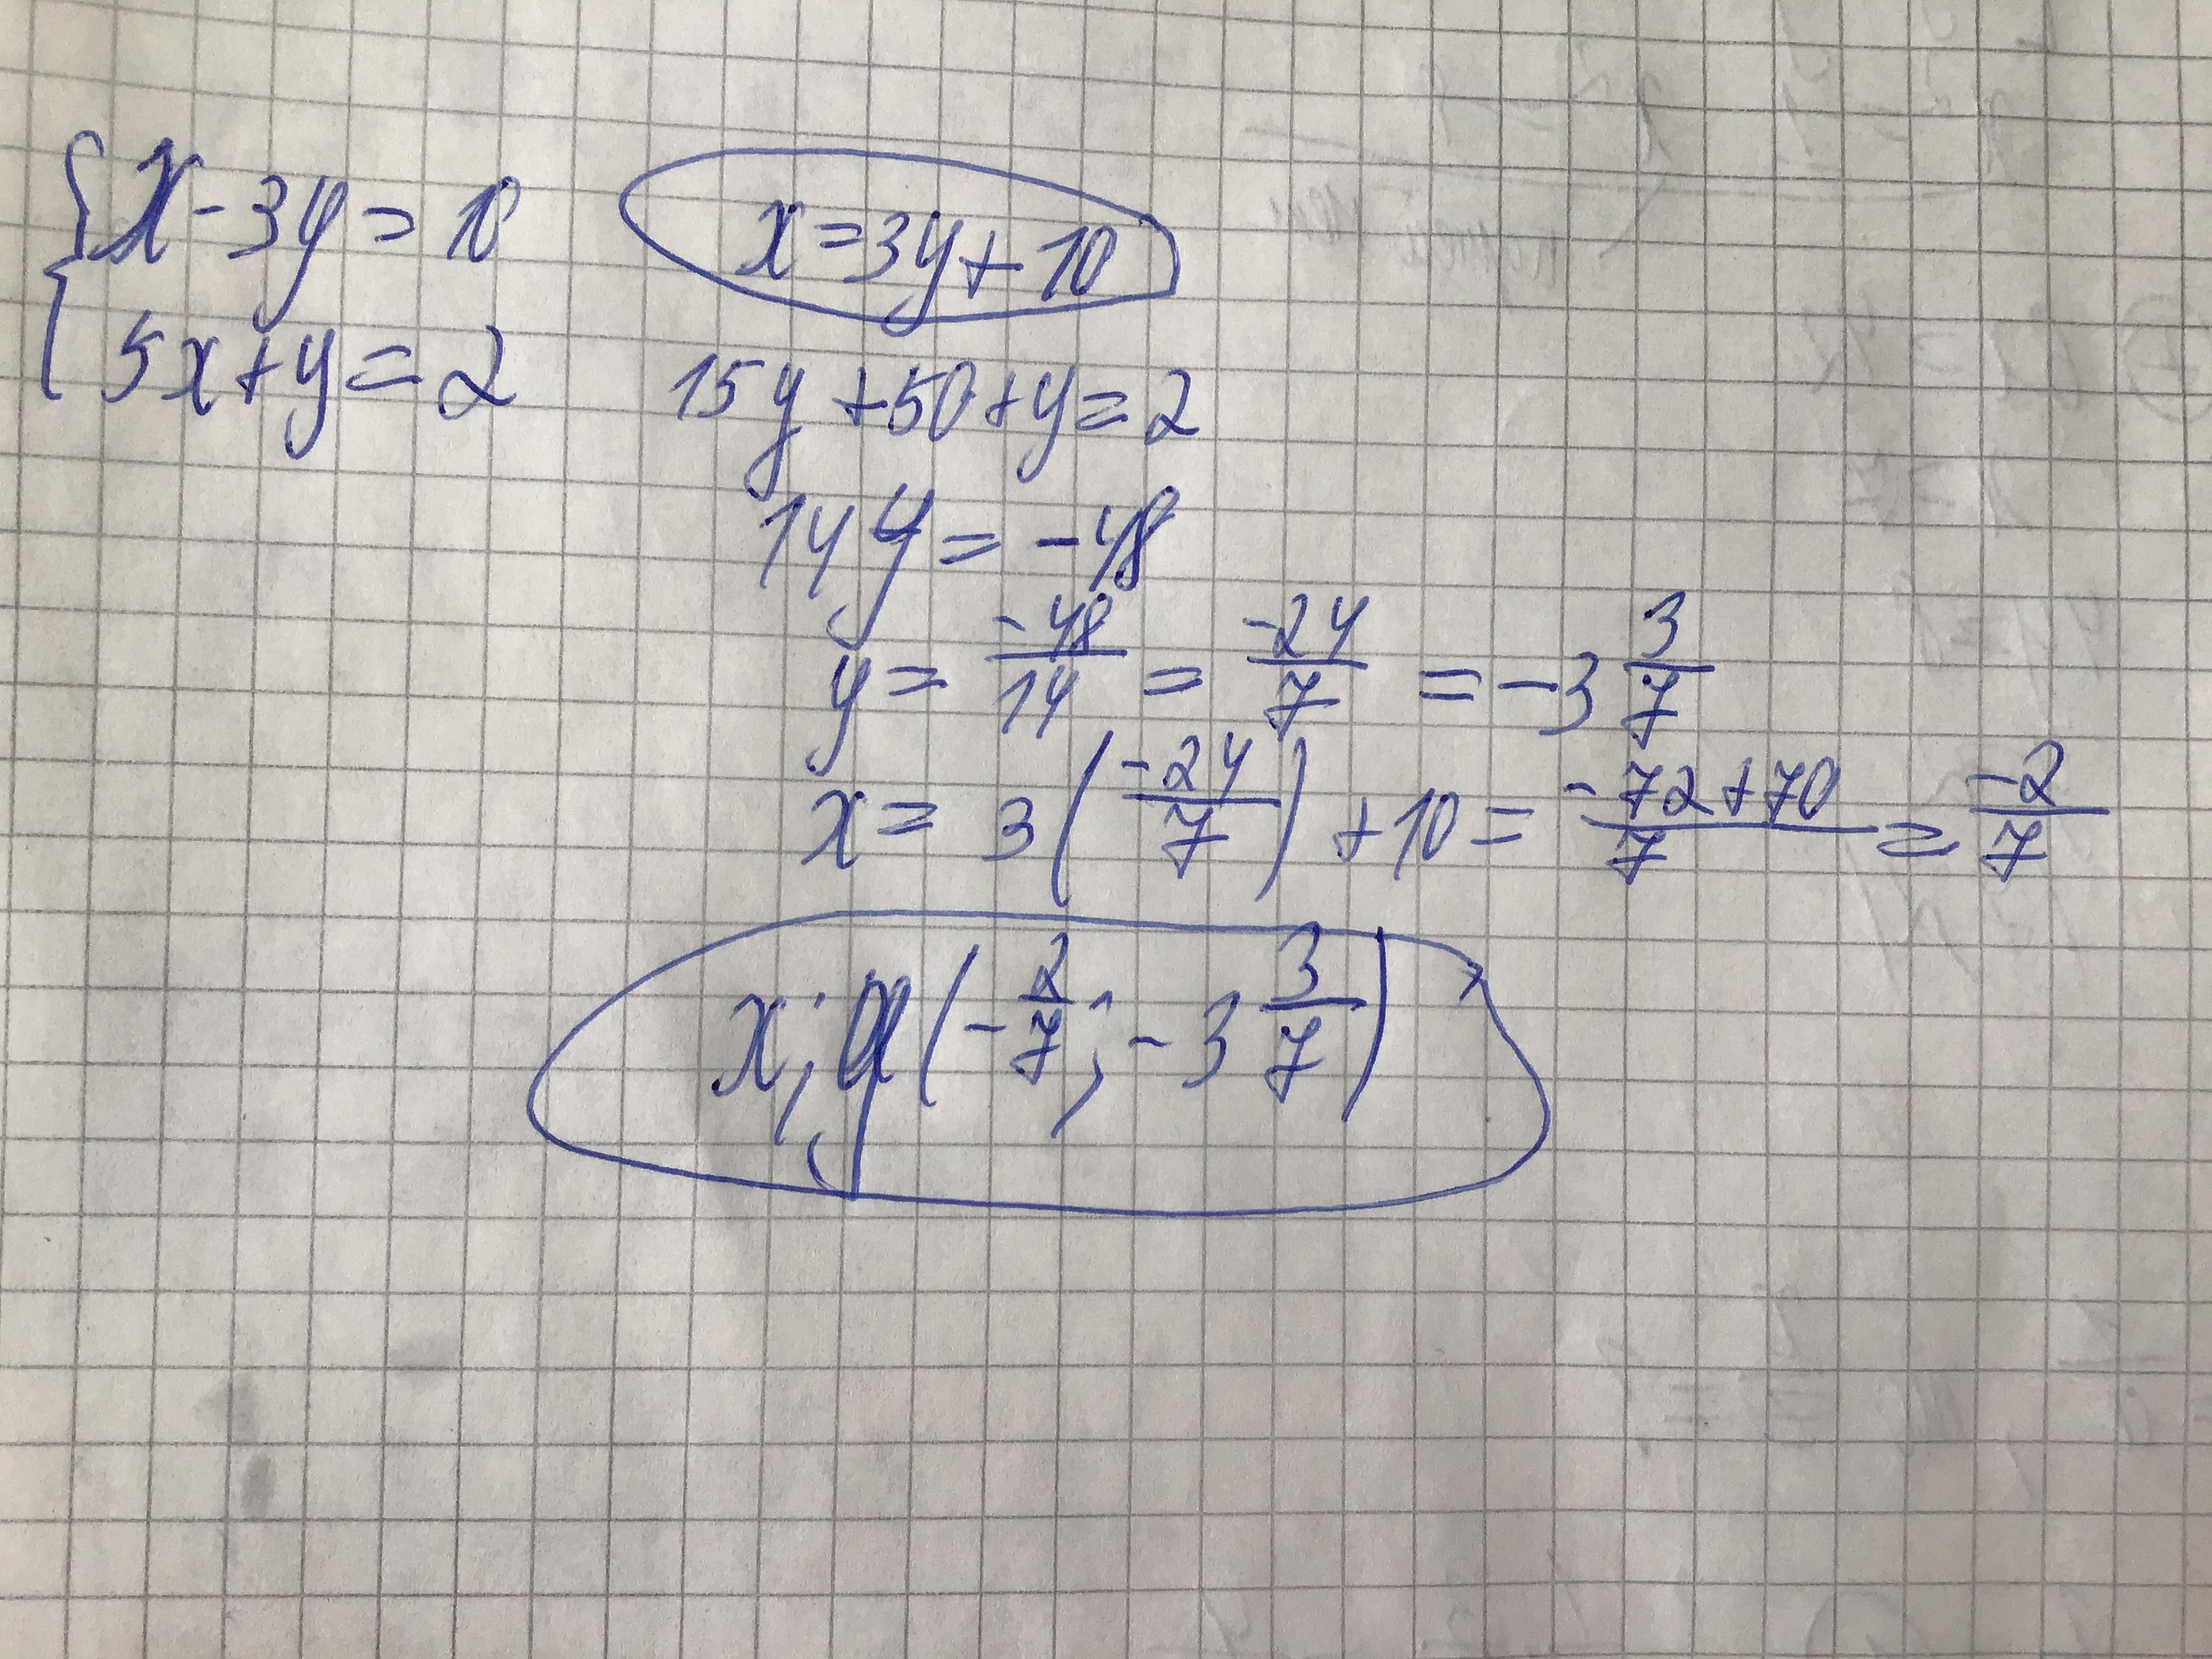 {x-3y=10 x=3y+10
5x+y=2 15y+50+y=2
14y=-48
y=-48/14=-24/7=-3 3/7
x=3(-24/7)+10=-72+70/7=-2/7
x;y(-2/7;-3 3/7)